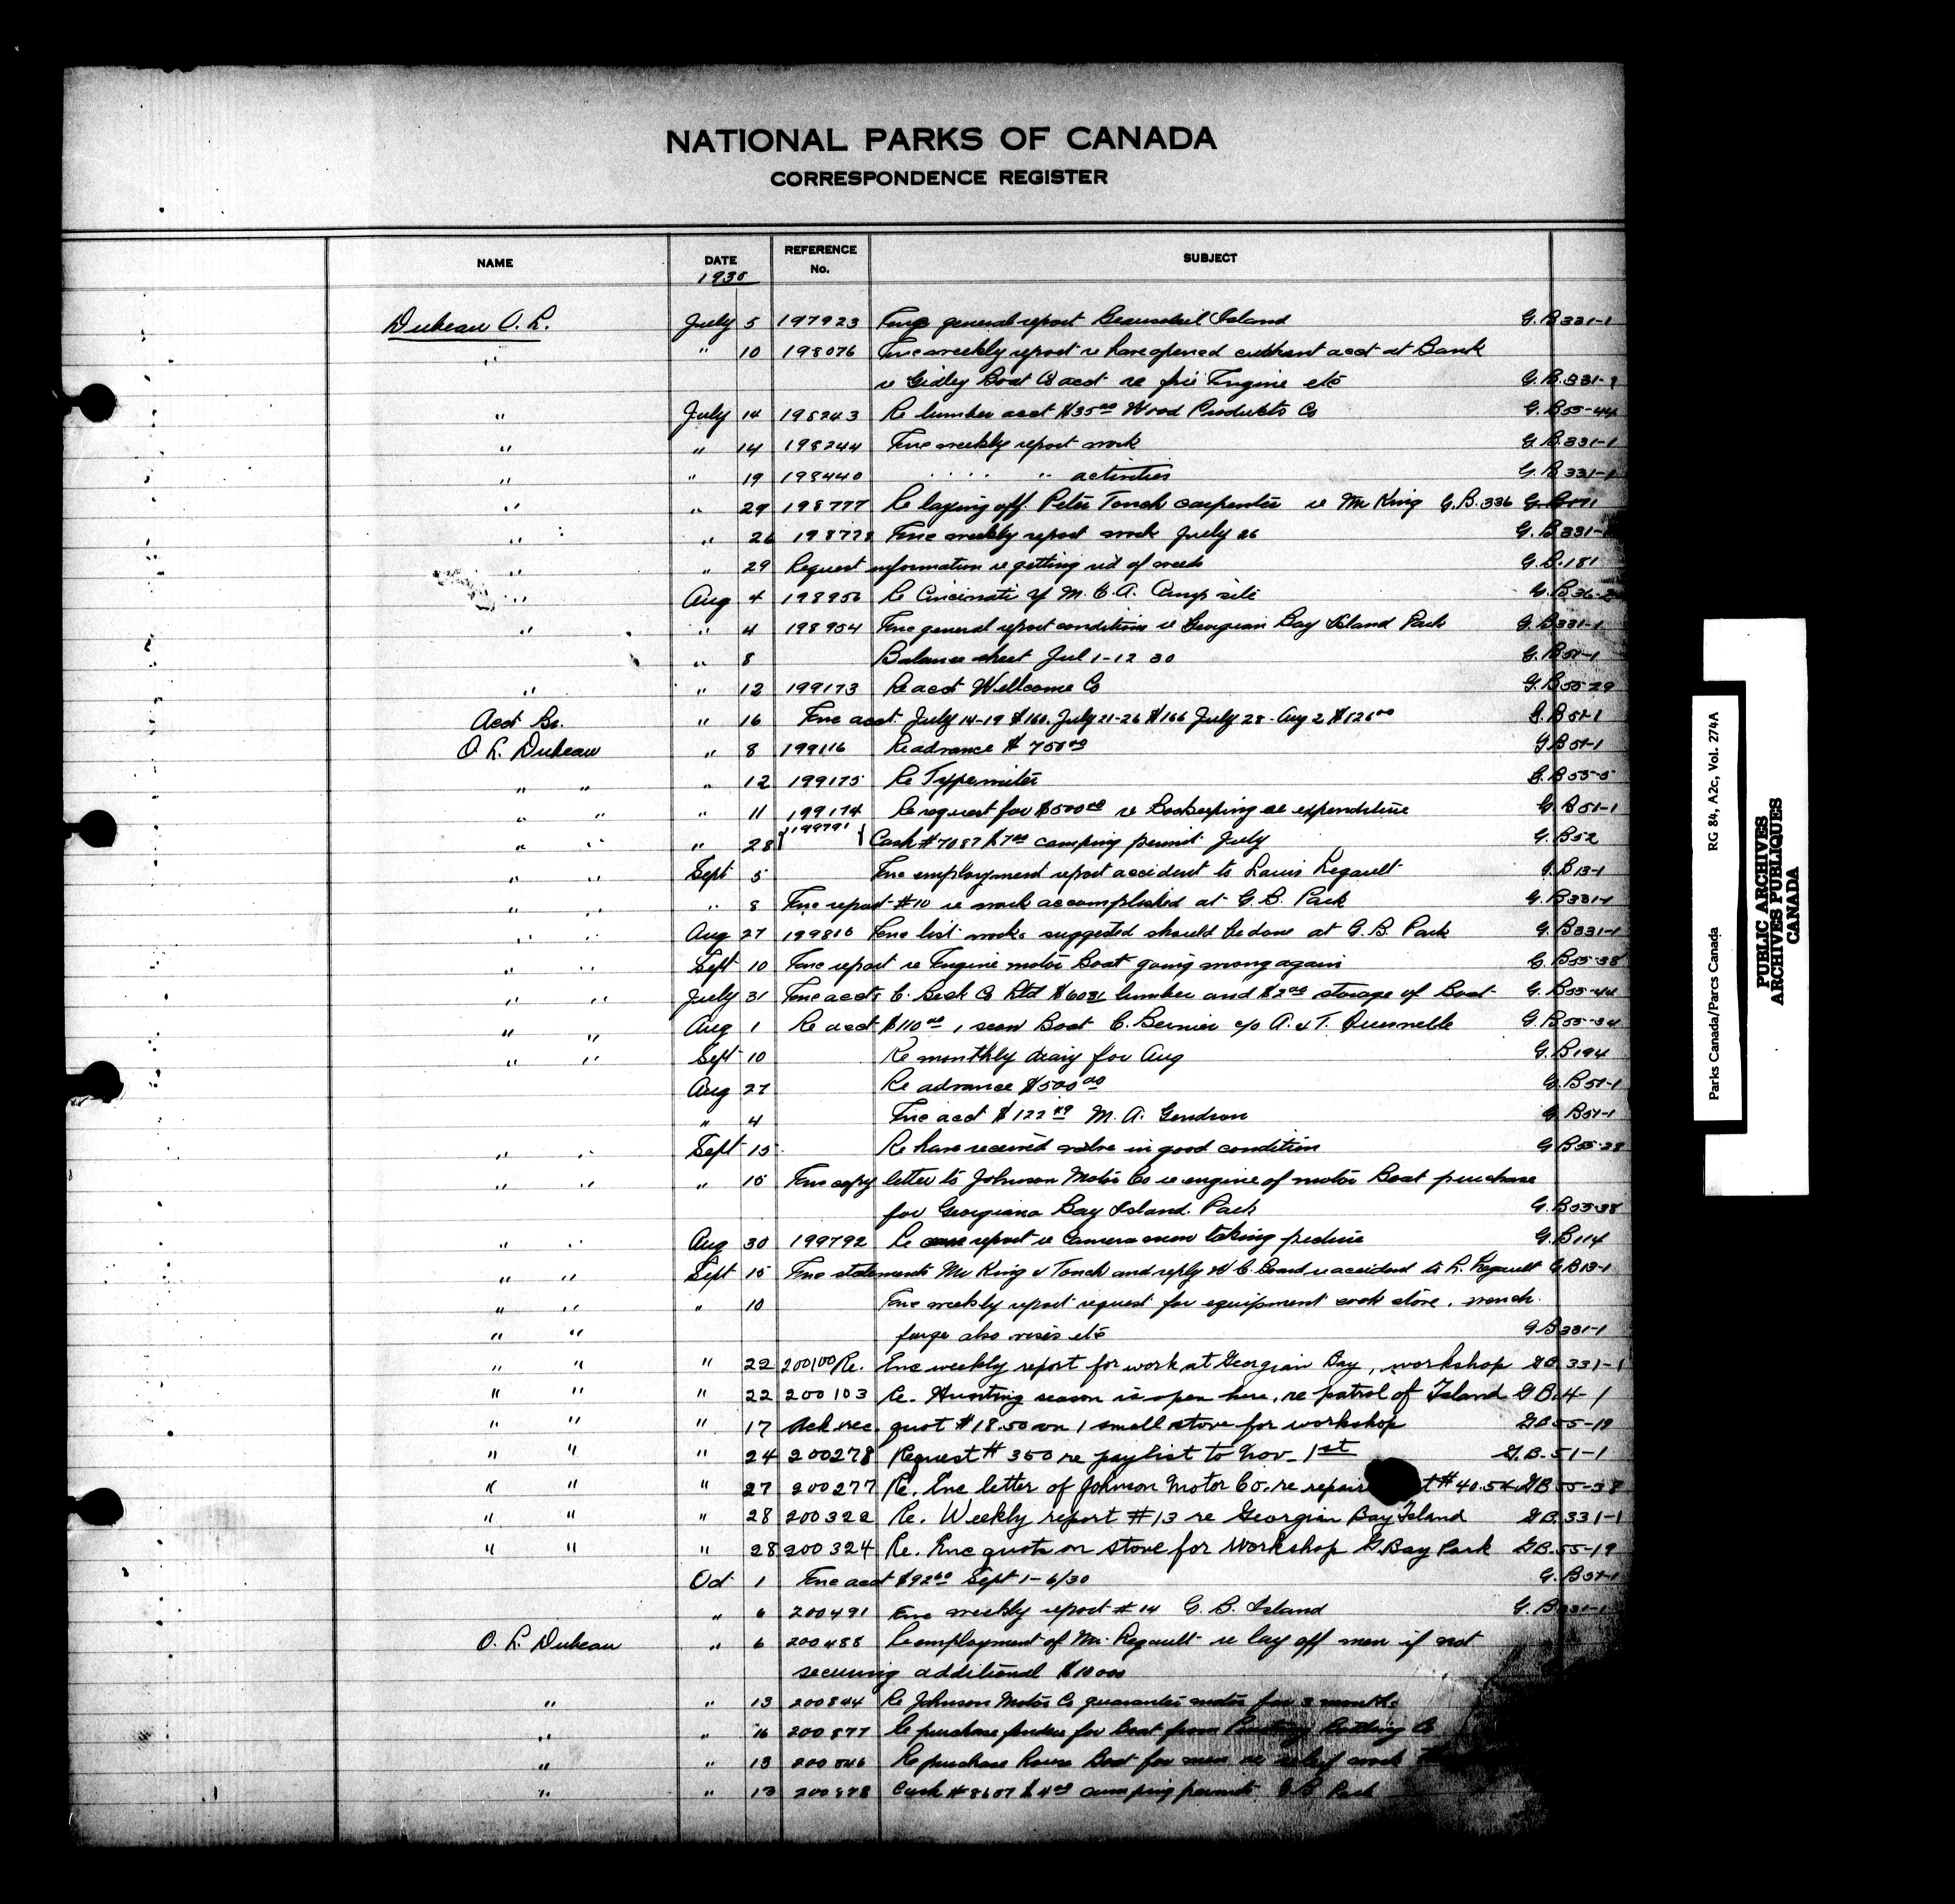 NATIONAL PARKS OF CANADA
CORRESPONDENCE REGISTER
NAME DATE REFERENCE No. SUBJECT
1930
Dubeau O. L. July 5 197923 general report Beausoleil Island G.B 331-1
" " 10 198076 Enc weekly report re have opened acct at Bank
re Gidley Boat Co acct re Engine etc G.B. 331-1
" July 14 198243 Re lumber acct $35.00 Wood Products Co G.B 55-44
" " 14 198244 Enc weekly report work G.B. 331-1
" " 19 198440 " " " " " activities G.B 331-1
" " 29 198777 Re laying off Peter Tonch carpenter re Mr King G.B. 336
" " 26 198778 Enc weekly report work July 26 G.B 331-1
" " 29 Request information re getting rid of weeds G.B. 181
" Aug 4 198956 Re Cincinati Y M. C. A. Camp site G.B 36-2
" " 4 198954 Enc general report conditions re Georgian Bay Island Park G.B 331-1
" 8 Balance sheet Jul 1-12 30 G.B 51-1
" " 12 199173 Re acct Wellcome Co G.B 55-29
Acct Br. " 16 Enc acct. July 14-19 $160. July 21-26 $166 July 28 - Aug 2 $126.00 G.B 51-1
O. L. Dubeau " 8 199116 Re advance $ 750.00 G.B 51-1
" " " 12 199175 Re Typewriter G.B 55-5
" " " 11 199174 Re request for $500.00 re Bookeeping re expenditure G.B 51-1
" " " 28 {199791} Cash # 7087 $7.00 camping permit July G.B 52
" " Sept 5 Enc employment report accident to Louis Legault G.B 13-1
" " " 8 Enc report #10 re work accomplished at G.B. Park G.B 331-1
" " Aug 27 199816 Enc list works suggested should be done at G.B. Park G.B 331-1
" " Sept 10 Enc report re Engine motor Boat going wrong again G.B 55-38
" " July 31 Enc accts C. Beck Co Ltd $60.81 lumber and $2.00 storage of Boat G.B 55-44
" " Aug 1 Re acct $110.00 1 scow Boat C. Bernier c/o A. & T. Quesnelle G.B 55-34
" " Sept 10 Re monthly diary for Aug G.B 194
Aug 27 Re advance $500.00 G.B 51-1
" 4 Enc acct $122.49 M. A. Gendron G.B 51-1
" " Sept 15 Re have received valve in good condition G.B 55-29
" " " 15 Enc copy letter to Johnson Motor Co re engine of motor Boat purchase
for Georgiana Bay Island. Park G.B 55-38
" " Aug 30 199792 Re report re Camera men taking picture G.B 114
" " Sept 15 Enc statements Mr King & Tonch and reply W C. Board re accident to L. Legault G.B 13-1
" " " 10 Enc weekly report request for equipment cook stove, wench
" " forge also vises etc G.B 331-1
" " " 22 200100 Re. Enc weekly report for work at Georgian Bay, workshop G.B. 331-1
" " " 22 200103 Re. Hunting season is open here, re patrol of Island G.B. 4-1
" " " 17 Ack rec. quot #18.50 on 1 small stove for workshop G.B 55-19
" " " 24 200278 Request # 350 re paylist to Nov. 1st G.B. 51-1
" " " 27 200277 Re. Enc letter of Johnson Motor Co. re repair # 40.54 G.B 55-38
" " " 28 200322 Re. Weekly report #13 re Georgian Bay Island G.B. 331-1
" " " 28 200324 Re. Enc quote on stove for Workshop G. Bay Park G.B. 55-19
Oct 1 Enc acct $92.60 Sept 1-6/30 G.B 51-1
" 6 200491 Enc weekly report #14 G.B. Island G.B 331-1
O. L. Dubeau " 6 200488 Re employment of Mr. Legault re lay off men if not
securing additional $10 000
" " 13 200844 Re Johnson Motor Co guarantee motor for 3 months
" " 16 200877 Re purchase for Boat from Co
" " 13 200846 Re purchase House Boat for men re relief work
" " 13 200878 Cash # 8607 $4.00 camping permits G.B Park
Parks Canada/Parcs Canada RG 84, A2c, Vol. 274A
PUBLIC ARCHIVES
ARCHIVES PUBLIQUES
CANADA